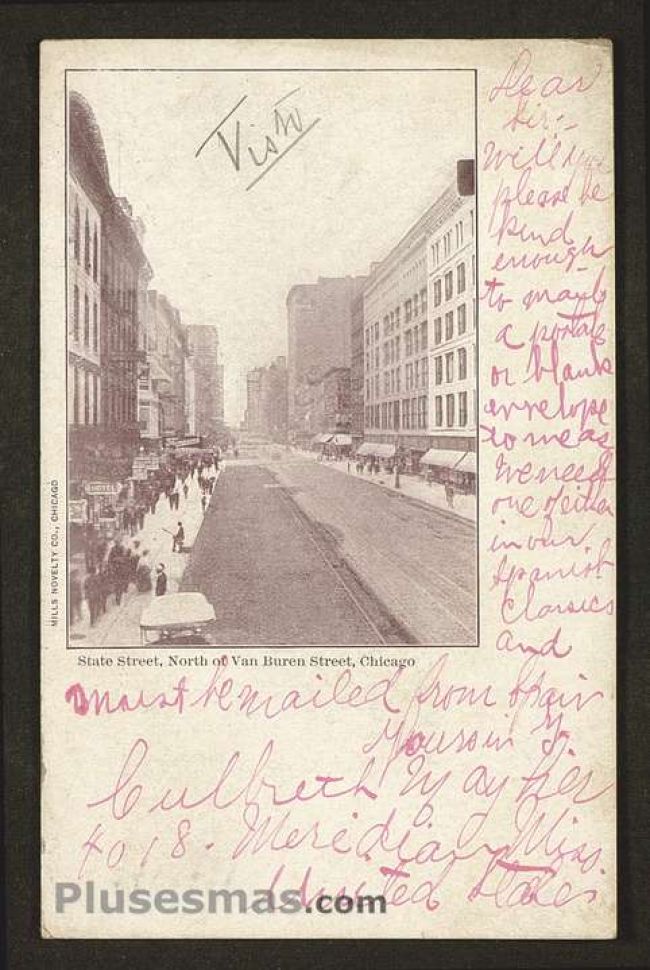 Visto
Dear
Sir:-
Will you
please be
kind
enough
to mail
a postal
or blank
envelope
to me as
we need
one of either
in our
Spanish
Classics
and
must be mailed from Spain
Yours in
Culbreth
4018. Meridian Miss.
United States
MILLS NOVELTY CO., CHICAGO
HOTEL
State Street, North of Van Buren Street, Chicago
Plusesmas.com